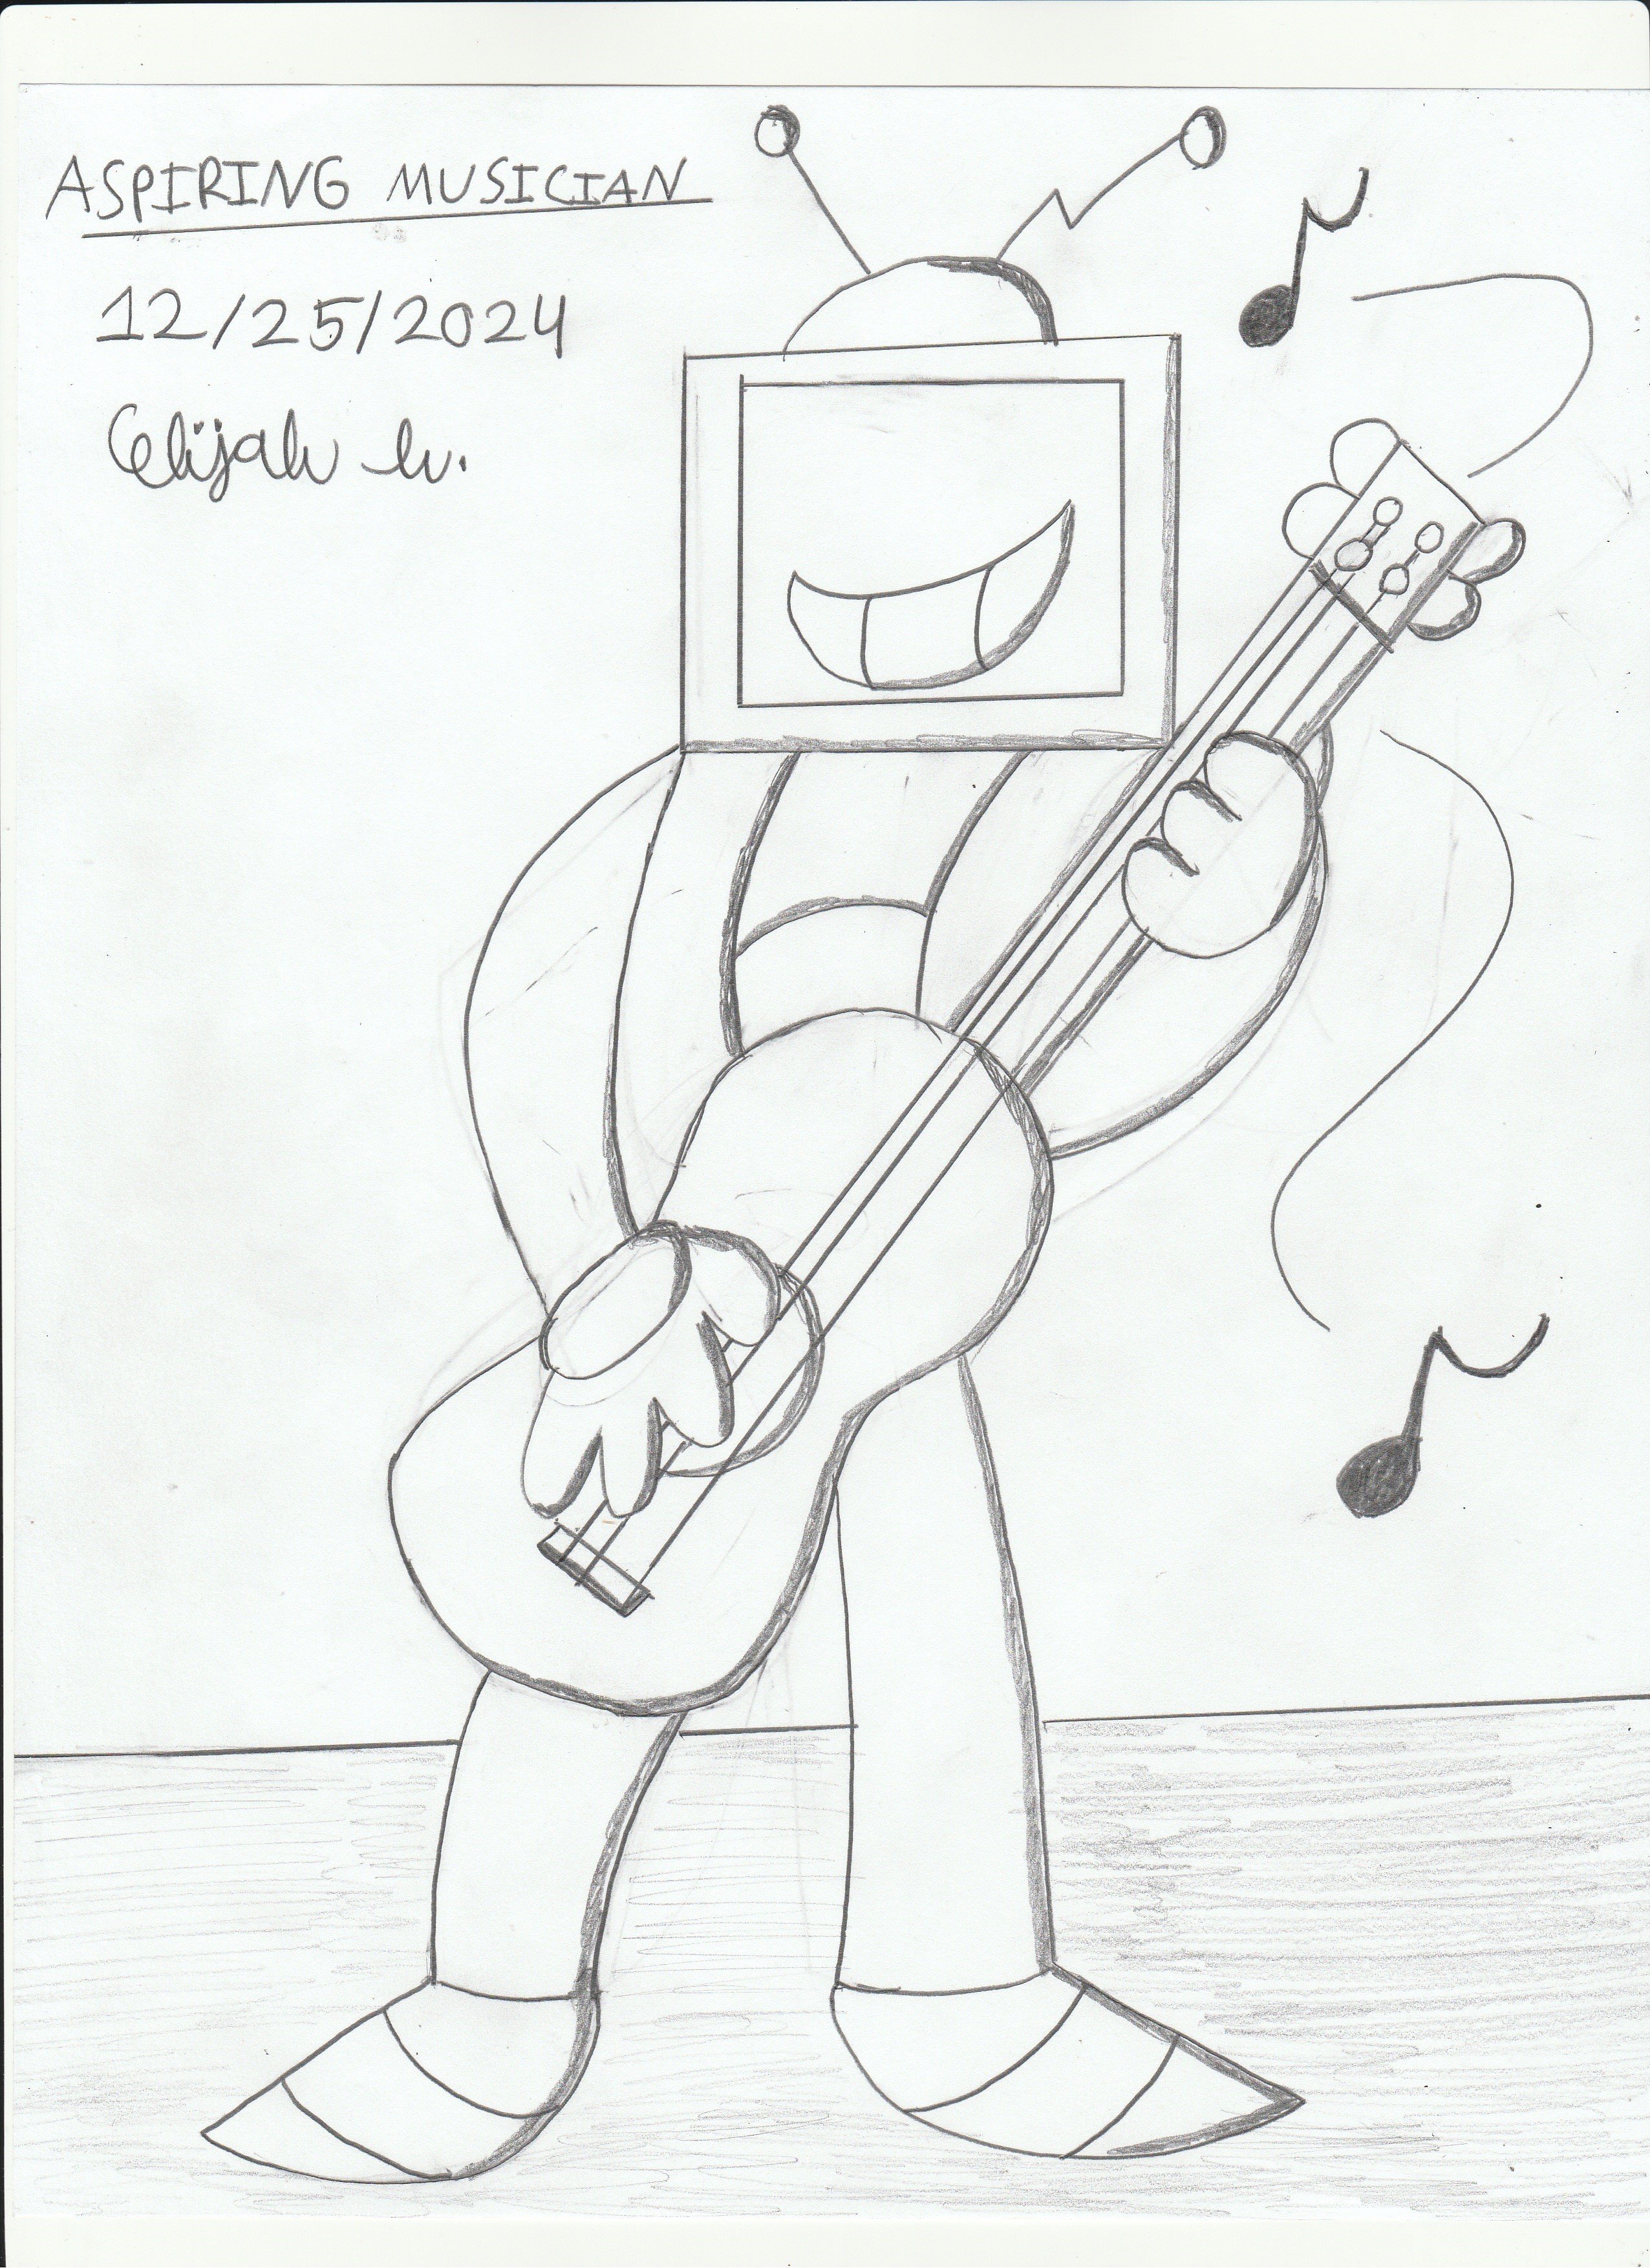 ASPIRING MUSICIAN
12/25/2024
Elijah